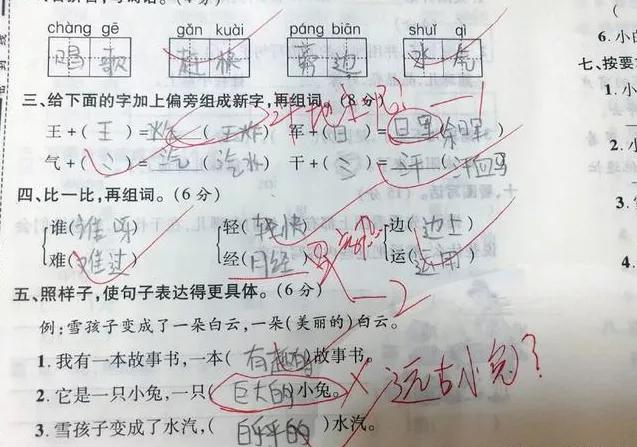 chàng gē gǎn kuài páng biān shuǐ qì
唱歌 赶快 旁边 水气
三、给下面的字加上偏旁组成新字,再组词。(8分)
王+(王)= (王炸) 军+(日)=
气+(氵)=汽(汽水) 干+(氵)= (汗血马)
四、比一比,再组词。(6分)
谁(谁呀) 轻(轻快) 边(边上)
难(难过) 经(月经) 运(运用)
五、照样子,使句子表达得更具体。(6分)
例:雪孩子变成了一朵白云,一朵(美丽的)白云。
1.我有一本故事书,一本(有趣的)故事书。
2.它是一只小兔,一只(巨大的)小兔。 远古小兔?
3.雪孩子变成了水汽,(白乎乎的)水汽。
-1
-2
6.小白
七、按要
1.小
2.小
3.
4.